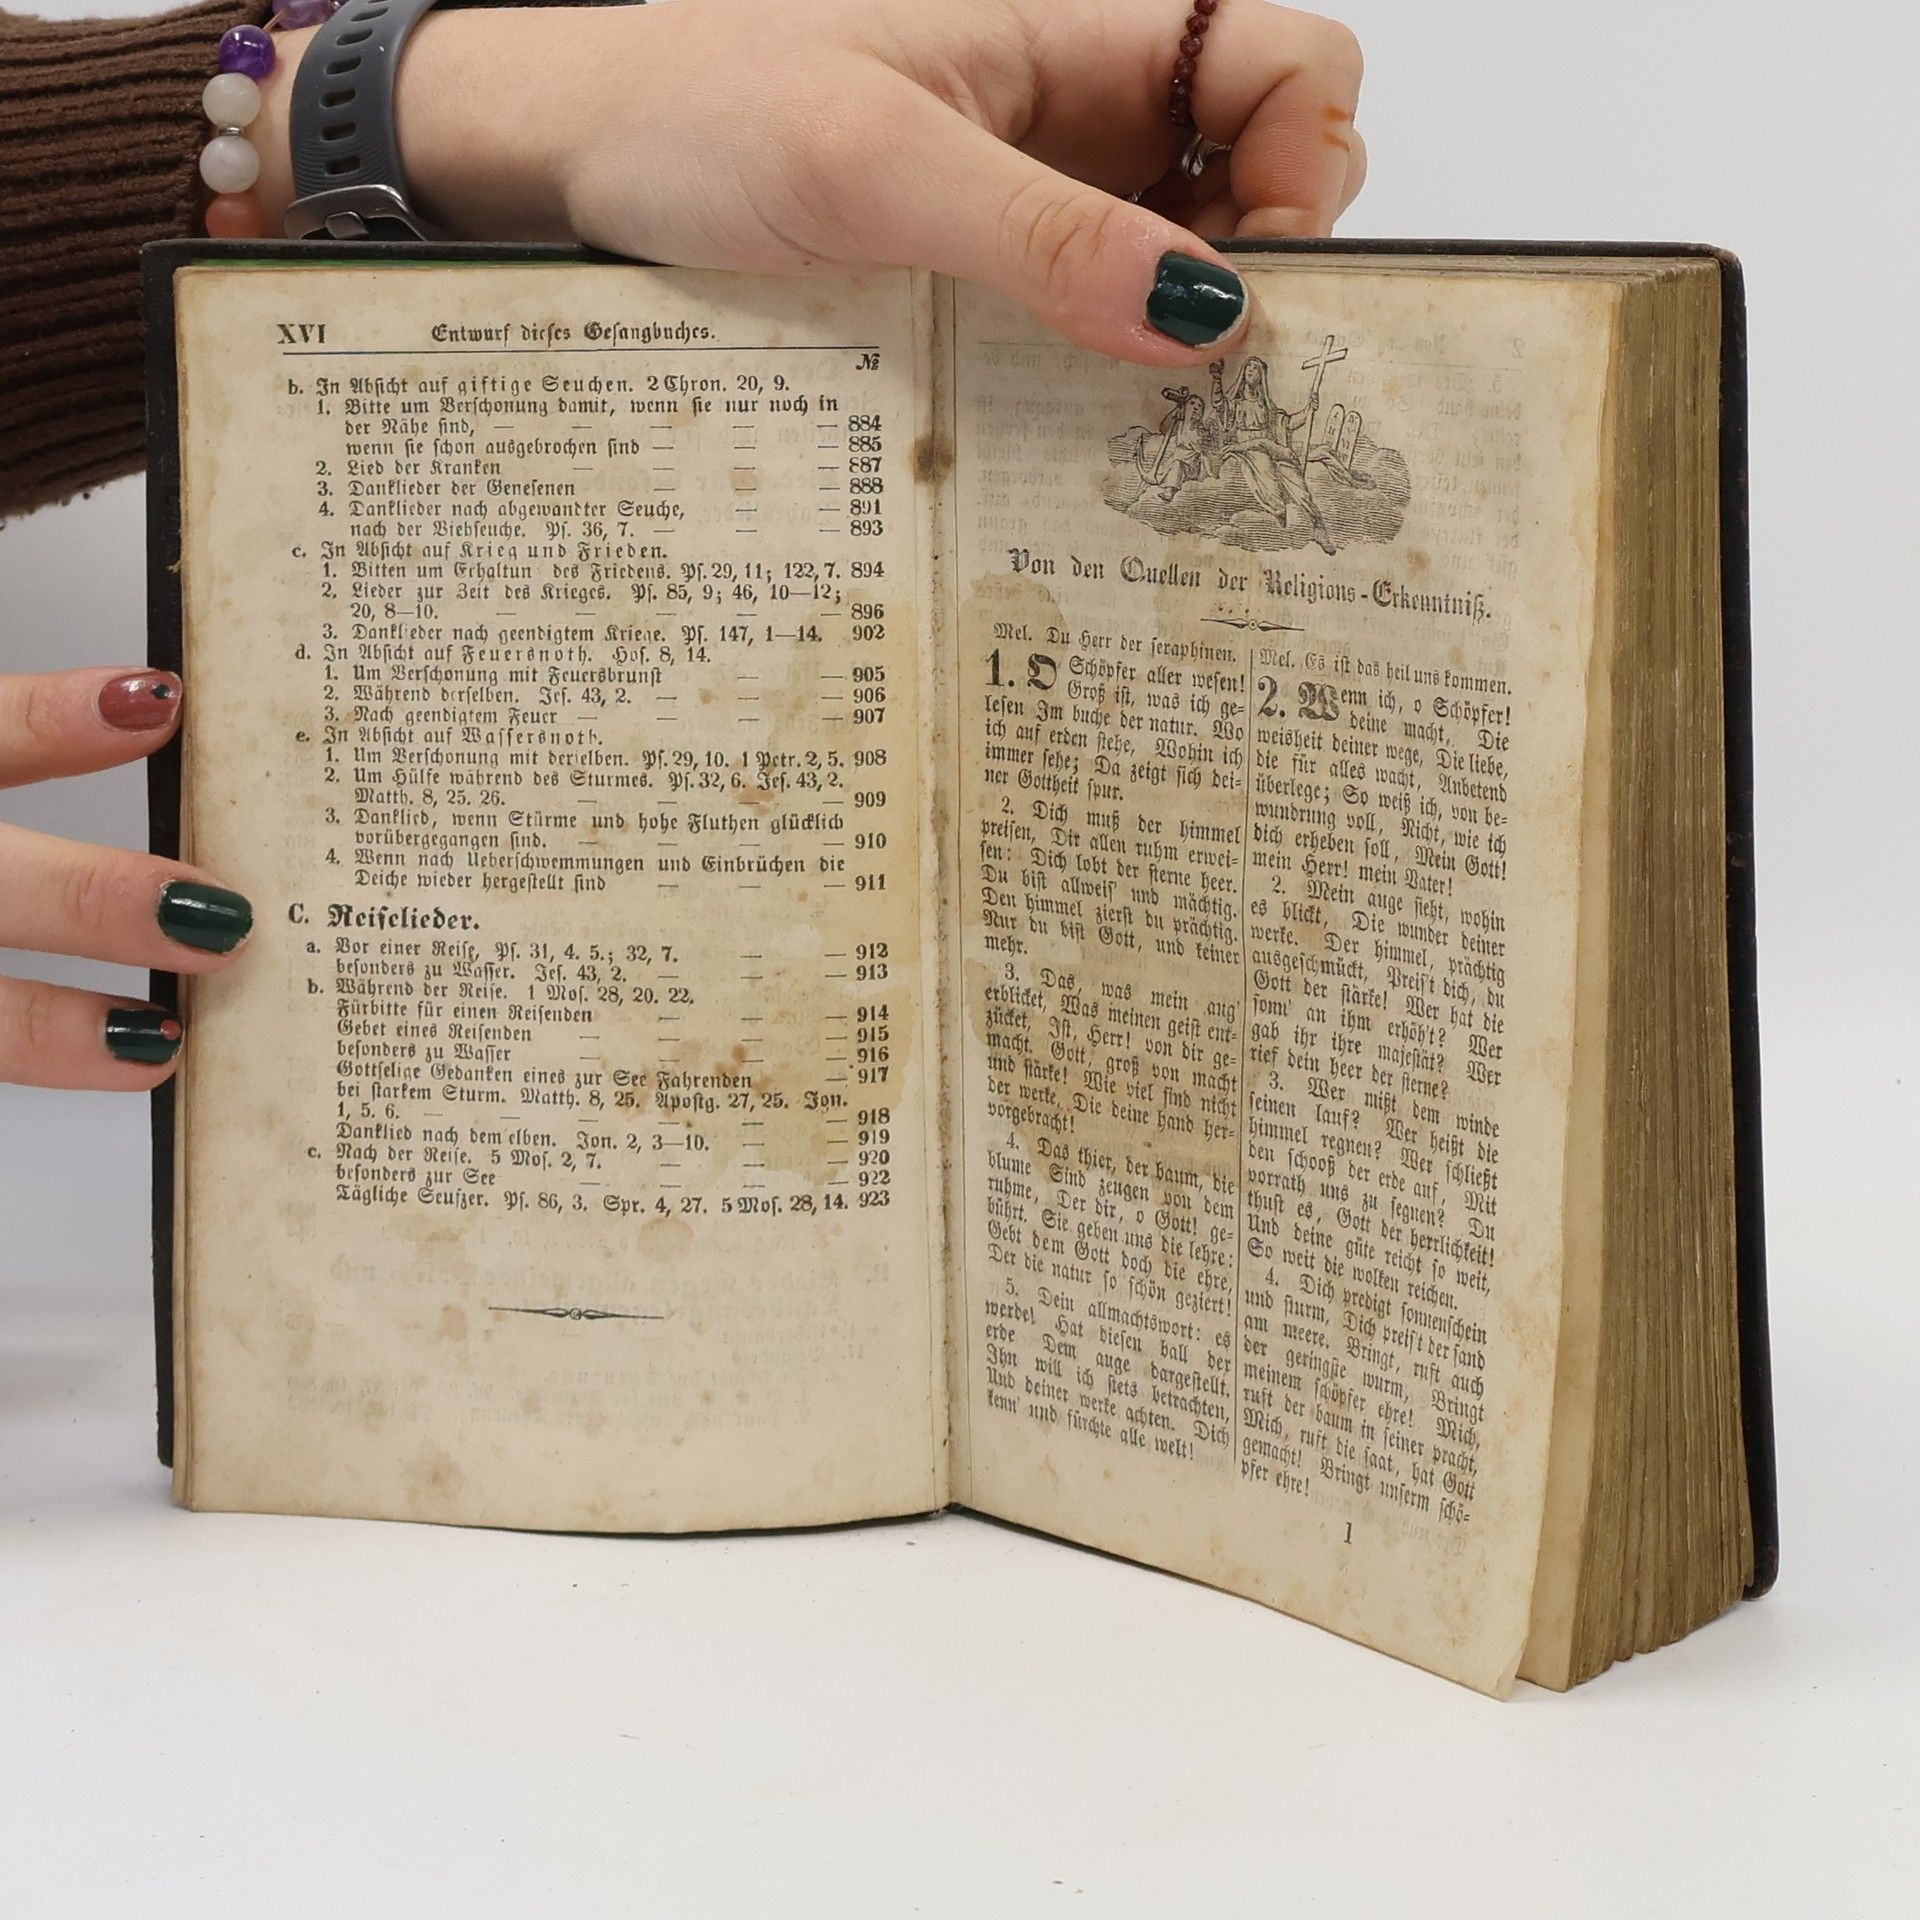 XVI Entwurf dieses Gesangbuches.
№
b. In Absicht auf giftige Seuchen. 2 Chron. 20, 9.
1. Bitte um Verschonung damit, wenn sie nur noch in
der Nähe sind, — — — — — 884
wenn sie schon ausgebrochen sind — — — 885
2. Lied der Kranken — — — — 887
3. Danklieder der Genesenen — — — 888
4. Danklieder nach abgewandter Seuche, — — 891
nach der Viehseuche. Ps. 36, 7. — — — 893
c. In Absicht auf Krieg und Frieden.
1. Bitten um Erhaltun des Friedens. Ps. 29, 11; 122, 7. 894
2. Lieder zur Zeit des Krieges. Ps. 85, 9; 46, 10—12;
20, 8—10. — — — — — 896
3. Danklieder nach geendigtem Kriege. Ps. 147, 1—14. 902
d. In Absicht auf Feuersnoth. Hos. 8, 14.
1. Um Verschonung mit Feuersbrunst — — 905
2. Während derselben. Jes. 43, 2. — — — 906
3. Nach geendigtem Feuer — — — — 907
e. In Absicht auf Wassersnoth.
1. Um Verschonung mit derselben. Ps. 29, 10. 1 Petr. 2, 5. 908
2. Um Hülfe während des Sturmes. Ps. 32, 6. Jes. 43, 2.
Matth. 8, 25. 26. — — — — 909
3. Danklied, wenn Stürme und hohe Fluthen glücklich
vorübergegangen sind. — — — — 910
4. Wenn nach Ueberschwemmungen und Einbrüchen die
Deiche wieder hergestellt sind — — — 911
C. Reiselieder.
a. Vor einer Reise, Ps. 31, 4. 5.; 32, 7. — — 912
besonders zu Wasser. Jes. 43, 2. — — — 913
b. Während der Reise. 1 Mos. 28, 20. 22.
Fürbitte für einen Reisenden — — — 914
Gebet eines Reisenden — — — — 915
besonders zu Wasser — — — — 916
Gottselige Gedanken eines zur See Fahrenden — 917
bei starkem Sturm. Matth. 8, 25. Apostg. 27, 25. Jon.
1, 5. 6. — — — — — — 918
Danklied nach dem elben. Jon. 2, 3—10. — — 919
c. Nach der Reise. 5 Mos. 2, 7. — — — 920
besonders zur See — — — — 922
Tägliche Seufzer. Ps. 86, 3. Spr. 4, 27. 5 Mos. 28, 14. 923
Von den Quellen der Religions-Erkenntniß.
Mel. Du Herr der seraphinen.
1. O Schöpfer aller wesen!
Groß ist, was ich ge-
lesen Im buche der natur. Wo
ich auf erden stehe, Wohin ich
immer sehe; Da zeigt sich dei-
ner Gottheit spur.
2. Dich muß der himmel
preisen, Dir allen ruhm erwei-
sen: Dich lobt der sterne heer.
Du bist allweis' und mächtig.
Den himmel zierst du prächtig.
Nur du bist Gott, und keiner
mehr.
3. Das, was mein aug'
erblicket, Was meinen geist ent-
zücket, Ist, Herr! von dir ge-
macht. Gott, groß von macht
und stärke! Wie viel sind nicht
der werke, Die deine hand her-
vorgebracht!
4. Das thier, der baum, die
blume Sind zeugen von dem
ruhme, Der dir, o Gott! ge-
bührt. Sie geben uns die lehre:
Gebt dem Gott doch die ehre,
Der die natur so schön geziert!
5. Dein allmachtswort: es
werde! Hat diesen ball der
erde Dem auge dargestellt.
Ihn will ich stets betrachten,
Und deiner werke achten. Dich
kenn' und fürchte alle welt!
Mel. Es ist das heil uns kommen.
2. Wenn ich, o Schöpfer!
deine macht, Die
weisheit deiner wege, Die liebe,
die für alles wacht, Anbetend
überlege; So weiß ich, von be-
wundrung voll, Nicht, wie ich
dich erheben soll, Mein Gott!
mein Herr! mein Vater!
2. Mein auge sieht, wohin
es blickt, Die wunder deiner
werke. Der himmel, prächtig
ausgeschmückt, Preis't dich, du
Gott der stärke! Wer hat die
sonn' an ihm erhöh't? Wer
gab ihr ihre majestät? Wer
rief dein heer der sterne?
3. Wer mißt dem winde
seinen lauf? Wer heißt die
himmel regnen? Wer schließt
den schooß der erde auf, Mit
vorrath uns zu segnen? Du
thust es, Gott der herrlichkeit!
Und deine güte reicht so weit,
So weit die wolken reichen.
4. Dich predigt sonnenschein
und sturm, Dich preis't der sand
am meere. Bringt, ruft auch
der geringste wurm, Bringt
meinem schöpfer ehre! Mich,
ruft der baum in seiner pracht,
Mich, ruft die saat, hat Gott
gemacht! Bringt unserm schö-
pfer ehre!
1